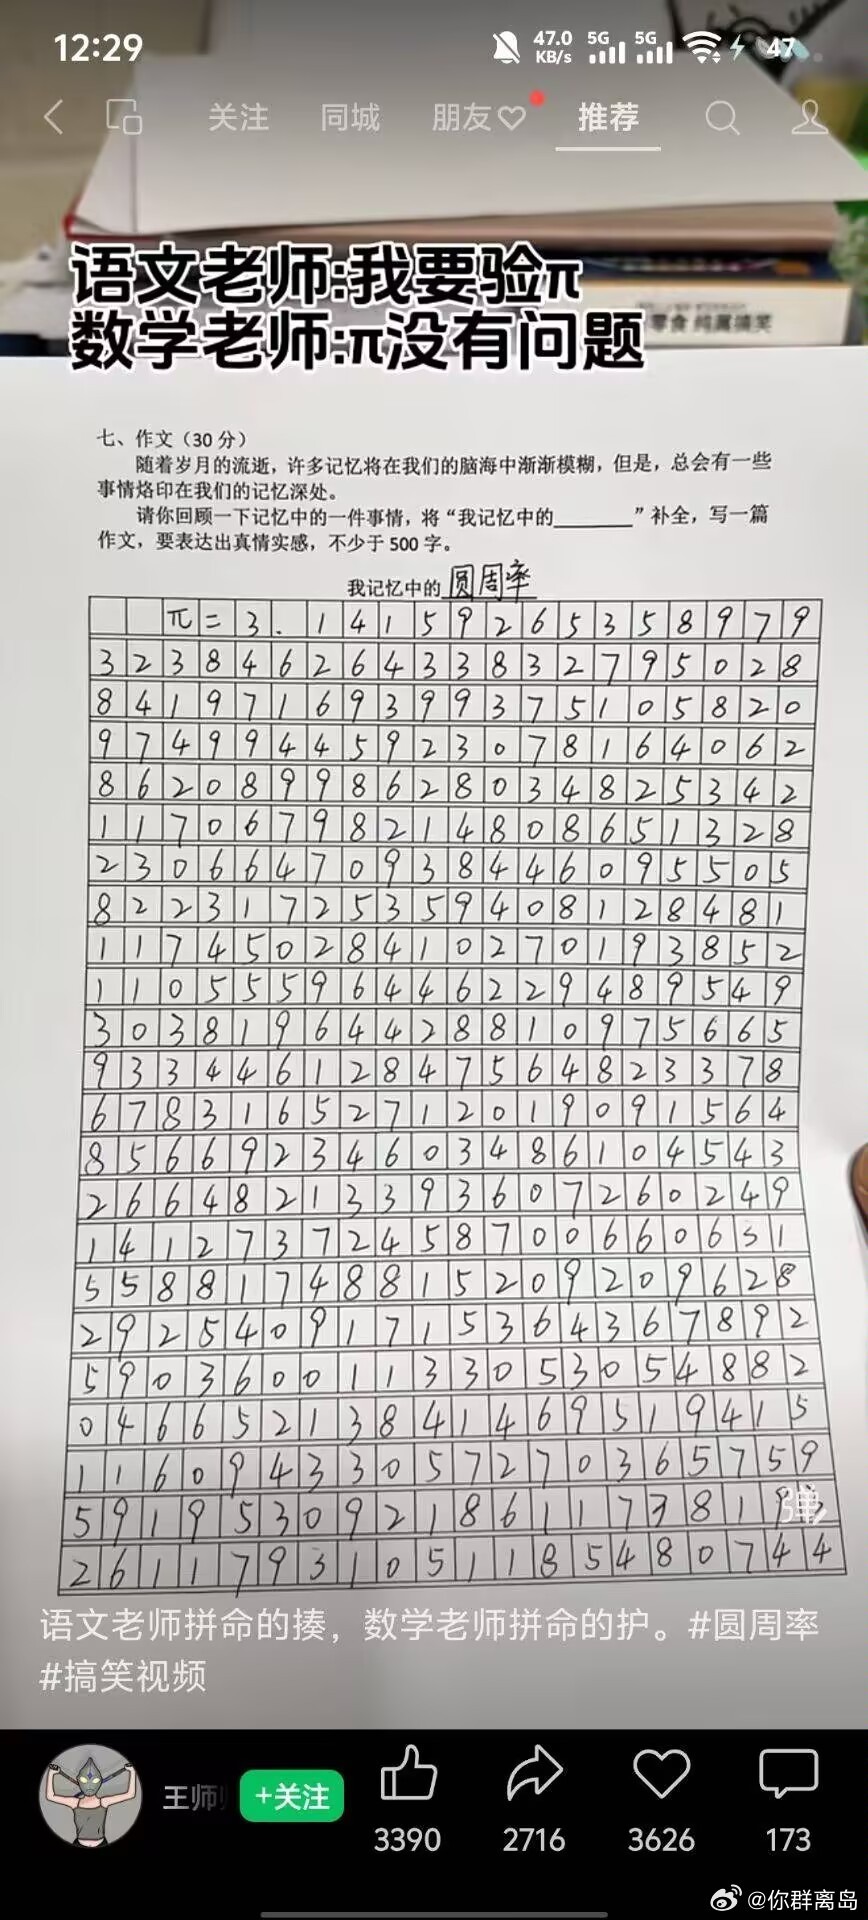 12:29 47.0 KB/s 5G 5G 47
关注 同城 朋友 推荐
语文老师:我要验π
数学老师:π没有问题
零食 纯属搞笑
七、作文（30分）
随着岁月的流逝，许多记忆将在我们的脑海中渐渐模糊，但是，总会有一些
事情烙印在我们的记忆深处。
请你回顾一下记忆中的一件事情，将“我记忆中的________”补全，写一篇
作文，要表达出真情实感，不少于500字。
我记忆中的 圆周率
π=3.14159265358979
32384626433832795028
84197169399375105820
97499445923078164062
86208998628034825342
11706798214808651328
23066470938446095505
82231725359408128481
11745028410270193852
11055596446229489549
30381964428810975665
93344612847564823378
67831652712019091564
85669234603486104543
26648213393607260249
14127372458700660631
55881748815209209628
29254091715364367892
59036001133053054882
04665213841469519415
11609433057270365759
5919530921861173819
弹
26117931051185480744
语文老师拼命的揍，数学老师拼命的护。#圆周率
#搞笑视频
王师 +关注 3390 2716 3626 173
@你群离岛